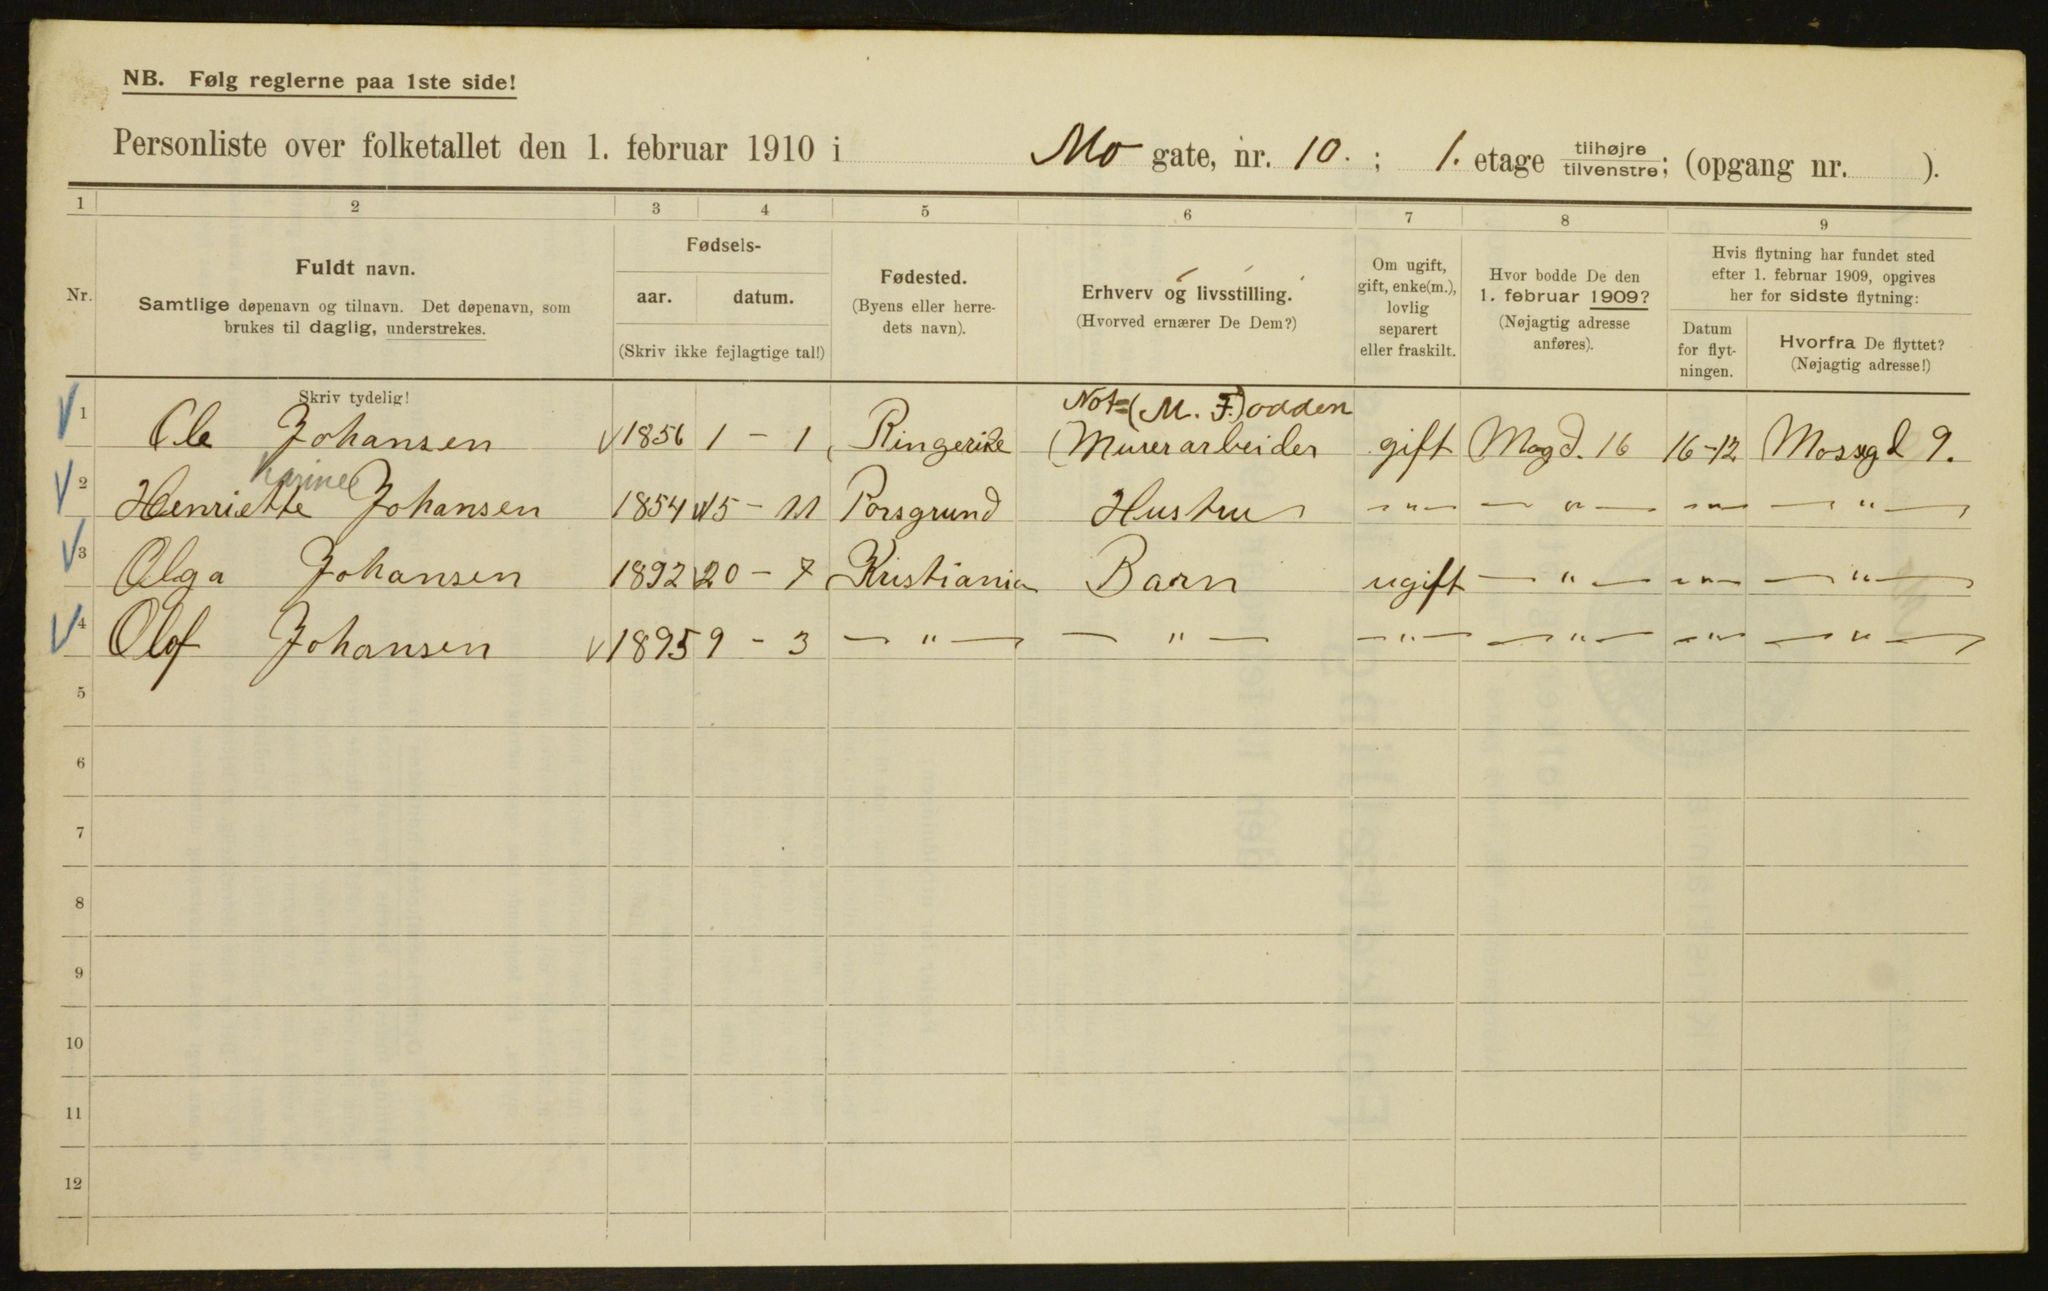 NB. Følg reglerne paa 1ste side!
Personliste over folketallet den 1. februar 1910 i Mo gate, nr. 10. ; 1. etage tilhøjre tilvenstre; (opgang nr. ).
1 2 3 4 5 6 7 8 9
Nr.
Fuldt navn.
Samtlige døpenavn og tilnavn. Det døpenavn, som
brukes til daglig, understrekes.
Skriv tydelig!
Fødsels-
aar. datum.
(Skriv ikke fejlagtige tal!)
Fødested.
(Byens eller herre-
dets navn).
Erhverv og livsstilling.
(Hvorved ernærer De Dem?)
Om ugift,
gift, enke(m.),
lovlig
separert
eller fraskilt.
Hvor bodde De den
1. februar 1909?
(Nøjagtig adresse
anføres).
Hvis flytning har fundet sted
efter 1. februar 1909, opgives
her for sidste flytning:
Datum
for flyt-
ningen.
Hvorfra De flyttet?
(Nøjagtig adresse!)
Not=(M. F.)odden
1 Ole Johansen 1856 1 - 1 Ringerike (Murerarbeider gift Magd. 16 16-12 Mossgd 9.
Karine
2 Henriette Johansen 1854 15 - 11 Porsgrund Hustru -"- -"- -"- -"-
3 Olga Johansen 1892 20 - 7 Kristiania Barn ugift -"- -"- -"-
4 Olof Johansen 1895 9 - 3 -"- -"- -"- -"- -"- -"-
5
6
7
8
9
10
11
12